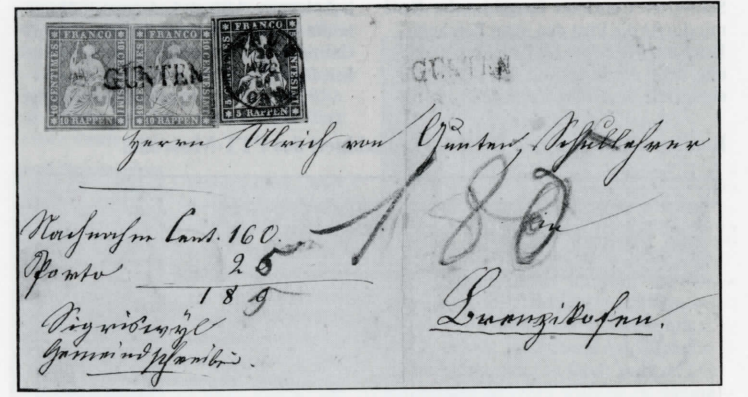 FRANCO FRANCO FRANCO
CENTIMES CENTIMES
GUNTEN GUNTEN
10 RAPPEN 10 RAPPEN 5 RAPPEN
Herrn Ulrich von Gunten, Schullehrer
180 in
Nachnahme Cent. 160.
Porto 25
185
Brenzikofen.
Sigriswyl
Gemeindschreiber.